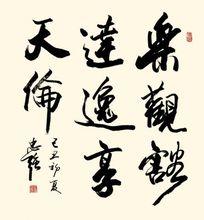 樂觀豁
達逸享
天倫
己丑初夏